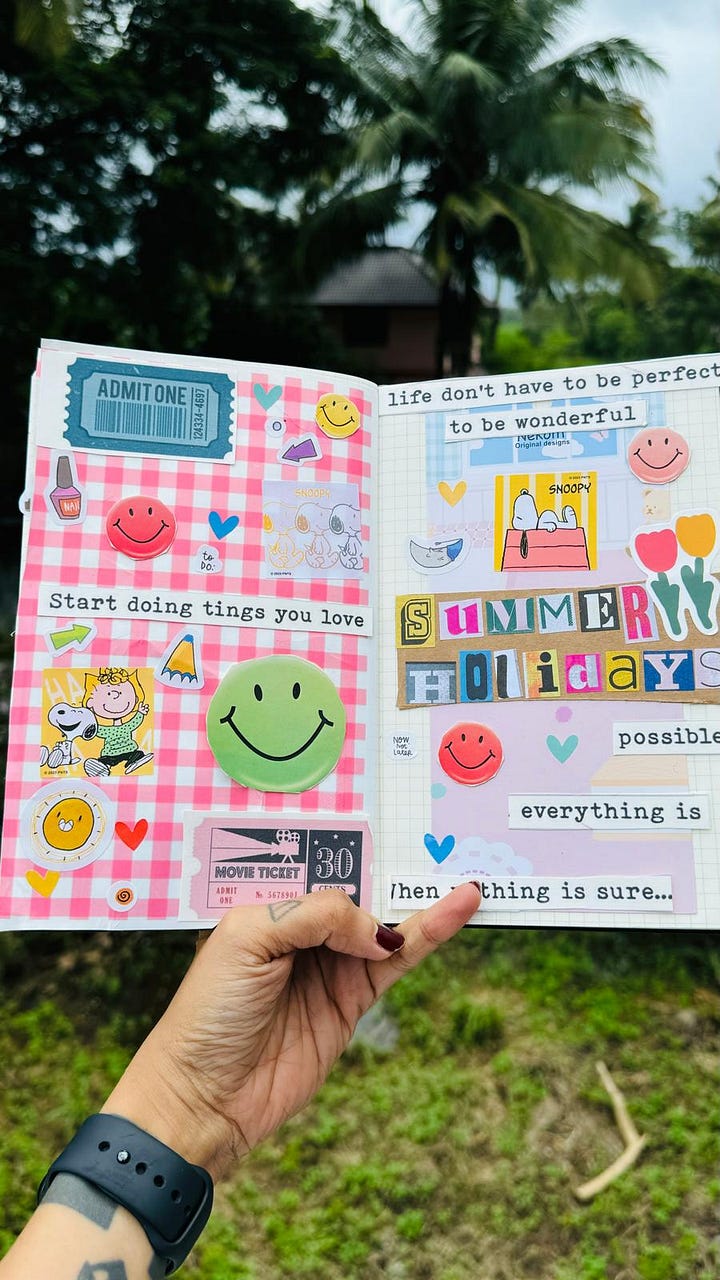 ADMIT ONE
124334-4697
NAIL
SNOOPY
to
DO:
Start doing tings you love
HA
MOVIE TICKET
30
CENTS
ADMIT
ONE
No 5678901
life don't have to be perfect
to be wonderful
Nekoni
Original designs
SNOOPY
SUMMER
HOlidaYS
NOW
not
LATER
possible
everything is
thing is sure...